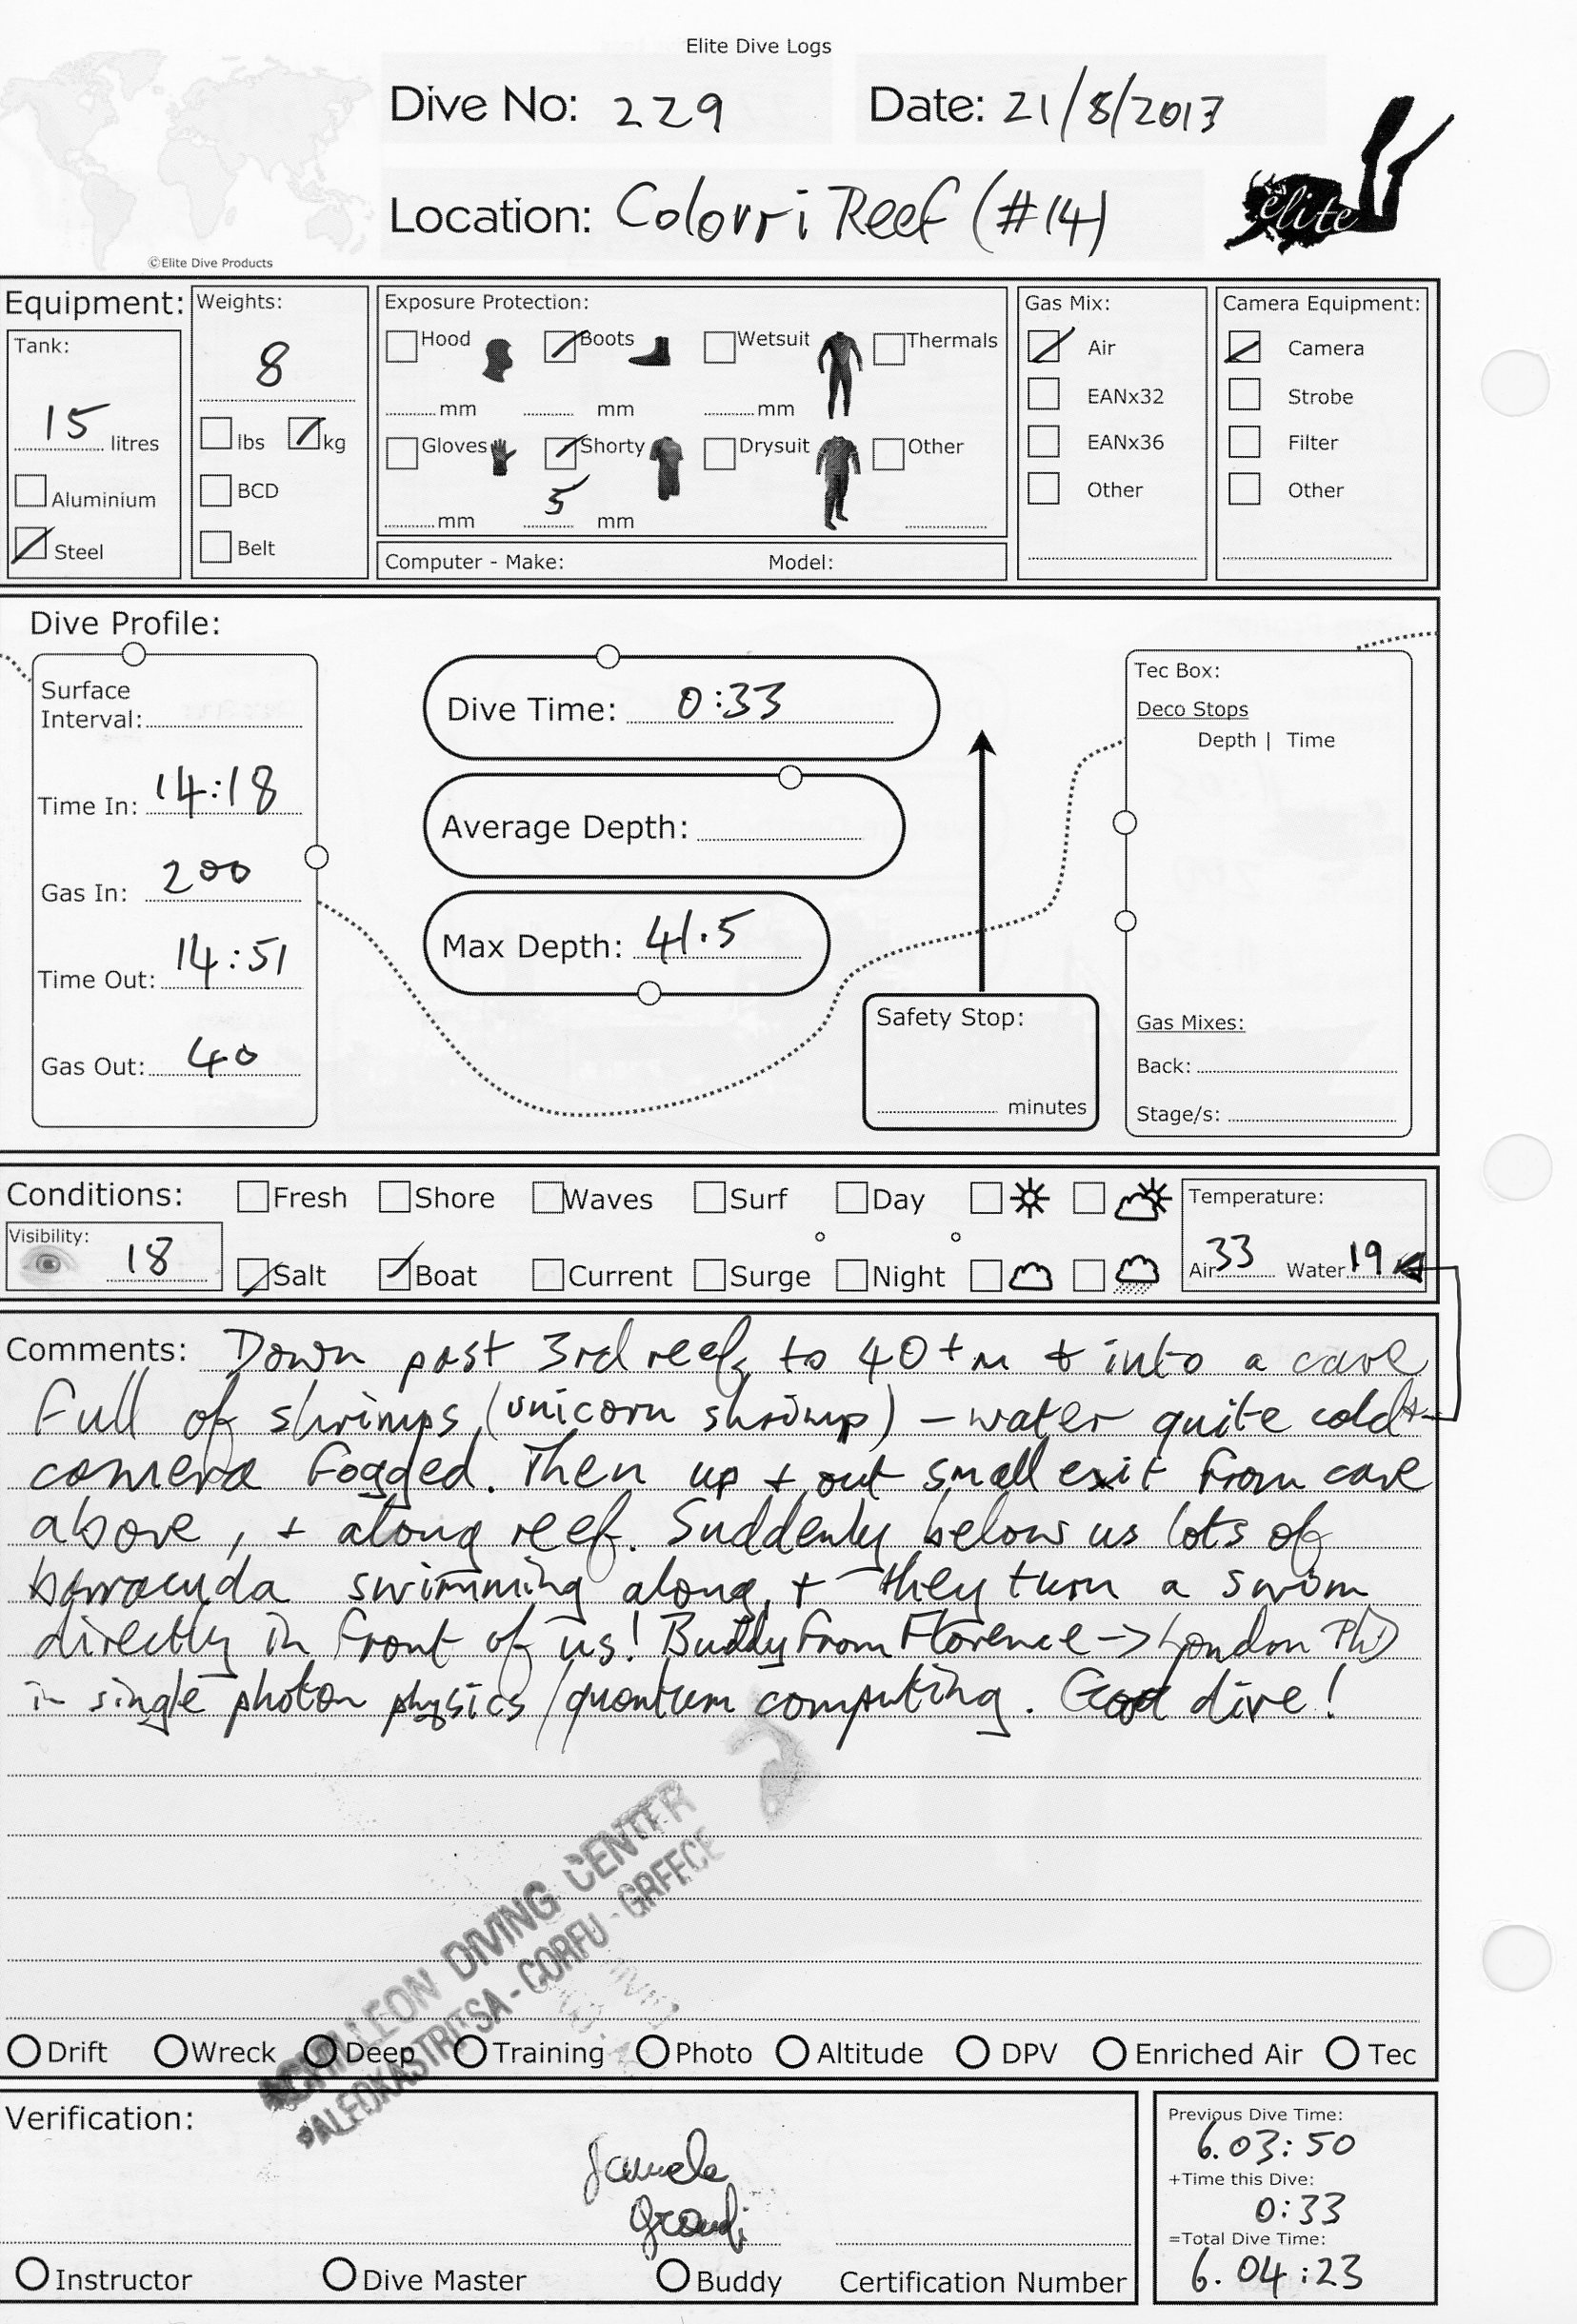 Elite Dive Logs
Dive No: 229
Date: 21/8/2013
Location: Colovri Reef (#14)
©Elite Dive Products
elite
Equipment:
Tank:
15 litres
Aluminium
Steel
Weights:
8
lbs kg
BCD
Belt
Exposure Protection:
Hood Boots Wetsuit Thermals
mm mm mm
Gloves Shorty Drysuit Other
mm 5 mm
Computer - Make: Model:
Gas Mix:
Air
EANx32
EANx36
Other
Camera Equipment:
Camera
Strobe
Filter
Other
Dive Profile:
Surface
Interval:
Time In: 14:18
Gas In: 200
Time Out: 14:51
Gas Out: 40
Dive Time: 0:33
Average Depth:
Max Depth: 41.5
Safety Stop:
minutes
Tec Box:
Deco Stops
Depth | Time
Gas Mixes:
Back:
Stage/s:
Conditions: Fresh Shore Waves Surf Day
Visibility: 18
Salt Boat Current Surge Night
Temperature:
Air 33 Water 19
Comments: Down past 3rd reef, to 40+m + into a cave
full of shrimps (unicorn shrimp) – water quite cold +
camera fogged. Then up + out small exit from cave
above, + along reef. Suddenly below us lots of
barracuda swimming along, + they turn a swim
directly in front of us! Buddy from Florence -> London PhD
in single photon physics/quantum computing. Good dive!
ACHILLEON DIVING CENTER
PALEOKASTRITSA - CORFU - GREECE
Drift Wreck Deep Training Photo Altitude DPV Enriched Air Tec
Verification:
Instructor Dive Master Buddy Certification Number
Previous Dive Time:
6.03:50
+Time this Dive:
0:33
=Total Dive Time:
6.04:23